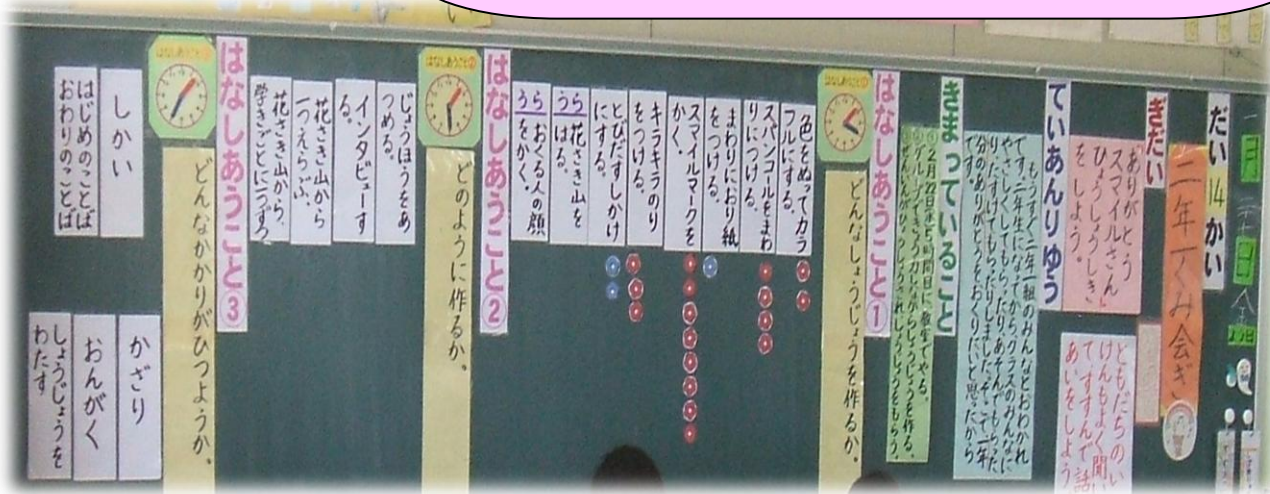 一月
日
だい14かい
二年一くみ会ぎ
ぎだい
「ありがとう
スマイルさん」
ひょうしょうしき
をしよう。
ともだちのい
けんもよく聞い
て、すすんで話
あいをしよう
ていあんりゆう
もうすぐ二年一組のみんなとおわかれ
です。二年生になってから、クラスのみんなに
やさしくしてもらったり、あそんでもらった
り、たすけてもらったりしました。そこで一年
分のありがとうをおくりたいと思ったから
です。
きまっていること
①2月22日(水)5時間目に教室でやる。
はなしあうこと①
はなしあうこと①
どんなしょうじょうを作るか。
色をぬってカラ
フルにする。
スパンコールをまわ
りにつける。
まわりにおり紙
をつける。
スマイルマークを
かく。
キラキラのり
をつける。
とびだすしかけ
にする。
うら 花さき山を
はる。
うら おくる人の顔
をかく。
はなしあうこと②
はなしあうこと②
どのように作るか。
じょうほうをあ
つめる。
インタビューす
る。
花さき山から
一つえらぶ。
花さき山から、
学きごとに一つずつ
はなしあうこと③
はなしあうこと③
どんなかかりがひつようか。
しかい
はじめのことば
おわりのことば
かざり
おんがく
しょうじょうを
わたす